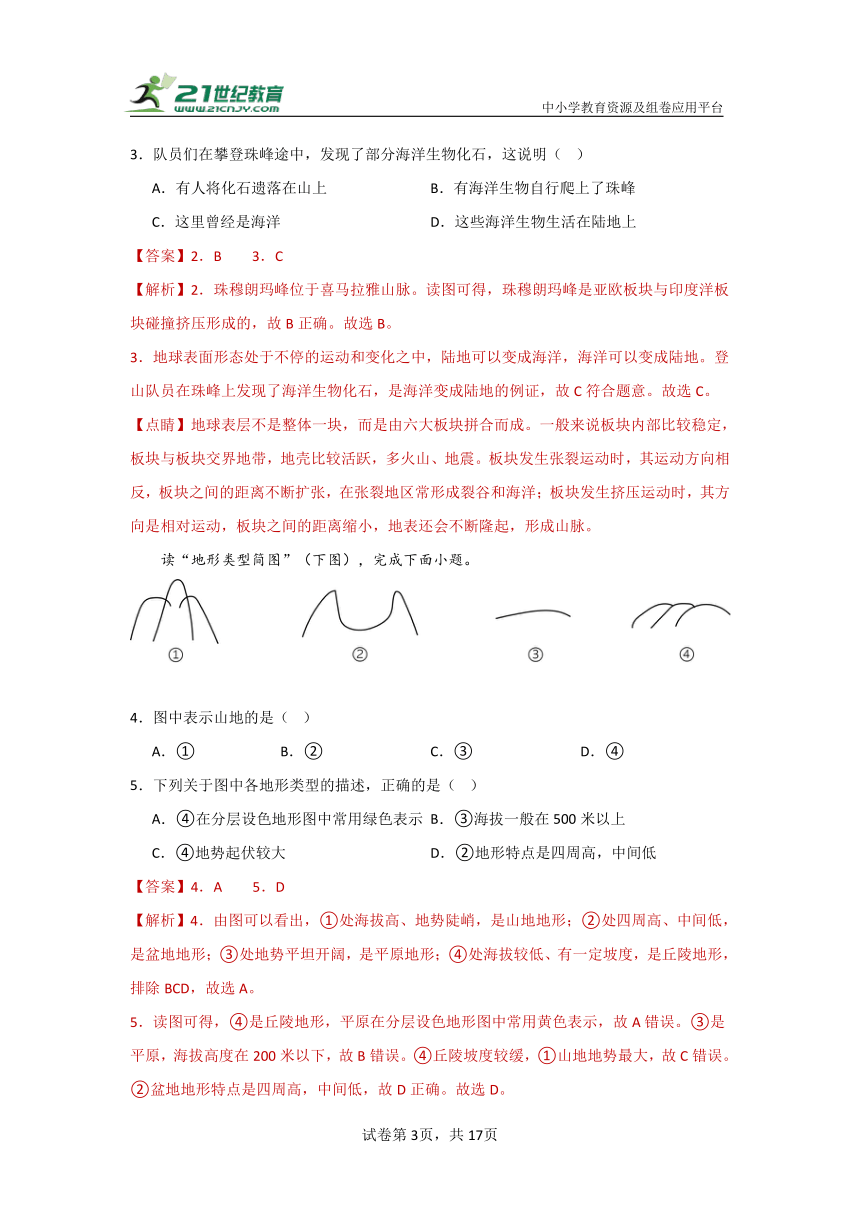 21世纪教育
WWW.21CNJY.COM
中小学教育资源及组卷应用平台
3．队员们在攀登珠峰途中，发现了部分海洋生物化石，这说明（ ）
A．有人将化石遗落在山上 B．有海洋生物自行爬上了珠峰
C．这里曾经是海洋 D．这些海洋生物生活在陆地上
【答案】2．B 3．C
【解析】2．珠穆朗玛峰位于喜马拉雅山脉。读图可得，珠穆朗玛峰是亚欧板块与印度洋板
块碰撞挤压形成的，故 B 正确。故选 B。
3．地球表面形态处于不停的运动和变化之中，陆地可以变成海洋，海洋可以变成陆地。登
山队员在珠峰上发现了海洋生物化石，是海洋变成陆地的例证，故 C 符合题意。故选 C。
【点睛】地球表层不是整体一块，而是由六大板块拼合而成。一般来说板块内部比较稳定，
板块与板块交界地带，地壳比较活跃，多火山、地震。板块发生张裂运动时，其运动方向相
反，板块之间的距离不断扩张，在张裂地区常形成裂谷和海洋；板块发生挤压运动时，其方
向是相对运动，板块之间的距离缩小，地表还会不断隆起，形成山脉。
读“地形类型简图”（下图），完成下面小题。
① ② ③ ④
4．图中表示山地的是（ ）
A．① B．② C．③ D．④
5．下列关于图中各地形类型的描述，正确的是（ ）
A．④在分层设色地形图中常用绿色表示 B．③海拔一般在 500 米以上
C．④地势起伏较大 D．②地形特点是四周高，中间低
【答案】4．A 5．D
【解析】4．由图可以看出，①处海拔高、地势陡峭，是山地地形；②处四周高、中间低，
是盆地地形；③处地势平坦开阔，是平原地形；④处海拔较低、有一定坡度，是丘陵地形，
排除 BCD，故选 A。
5．读图可得，④是丘陵地形，平原在分层设色地形图中常用黄色表示，故 A 错误。③是
平原，海拔高度在 200 米以下，故 B 错误。④丘陵坡度较缓，①山地地势最大，故 C 错误。
②盆地地形特点是四周高，中间低，故 D 正确。故选 D。
试卷第 3页，共 17页